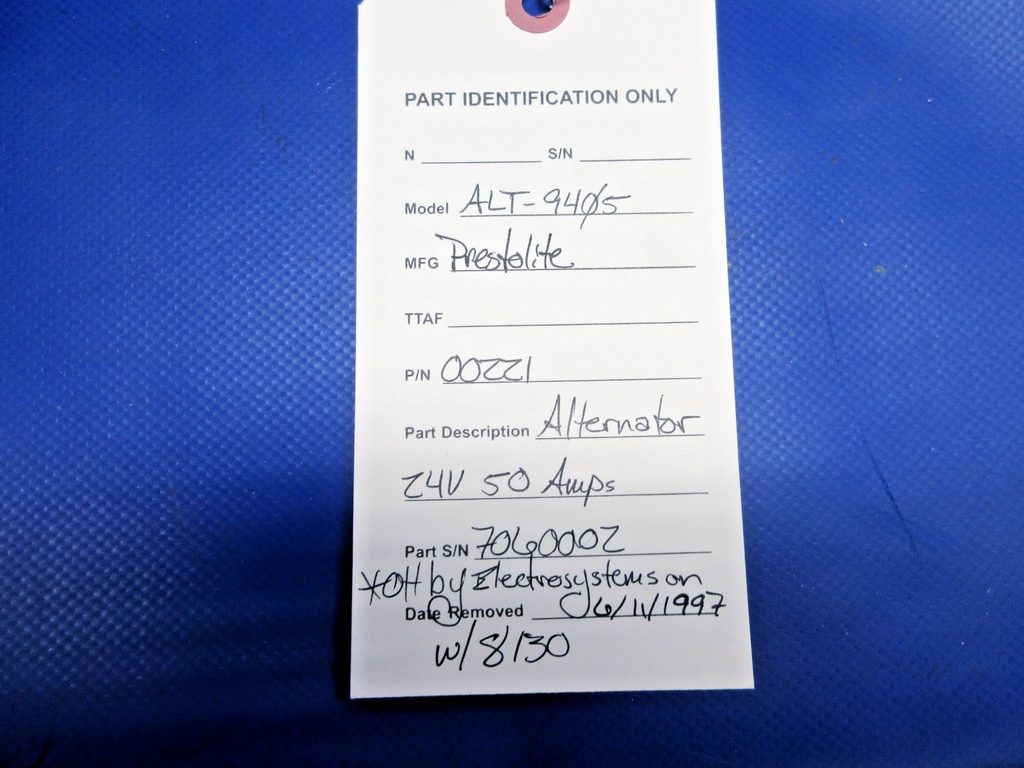 PART IDENTIFICATION ONLY
N ____________ S/N ____________
Model ALT-9405
MFG Prestolite
TTAF ____________
P/N 00221
Part Description Alternator
24V 50 Amps
Part S/N 7060002
*OH by Electrosystems on
Date Removed 6/11/1997
w/ 8130